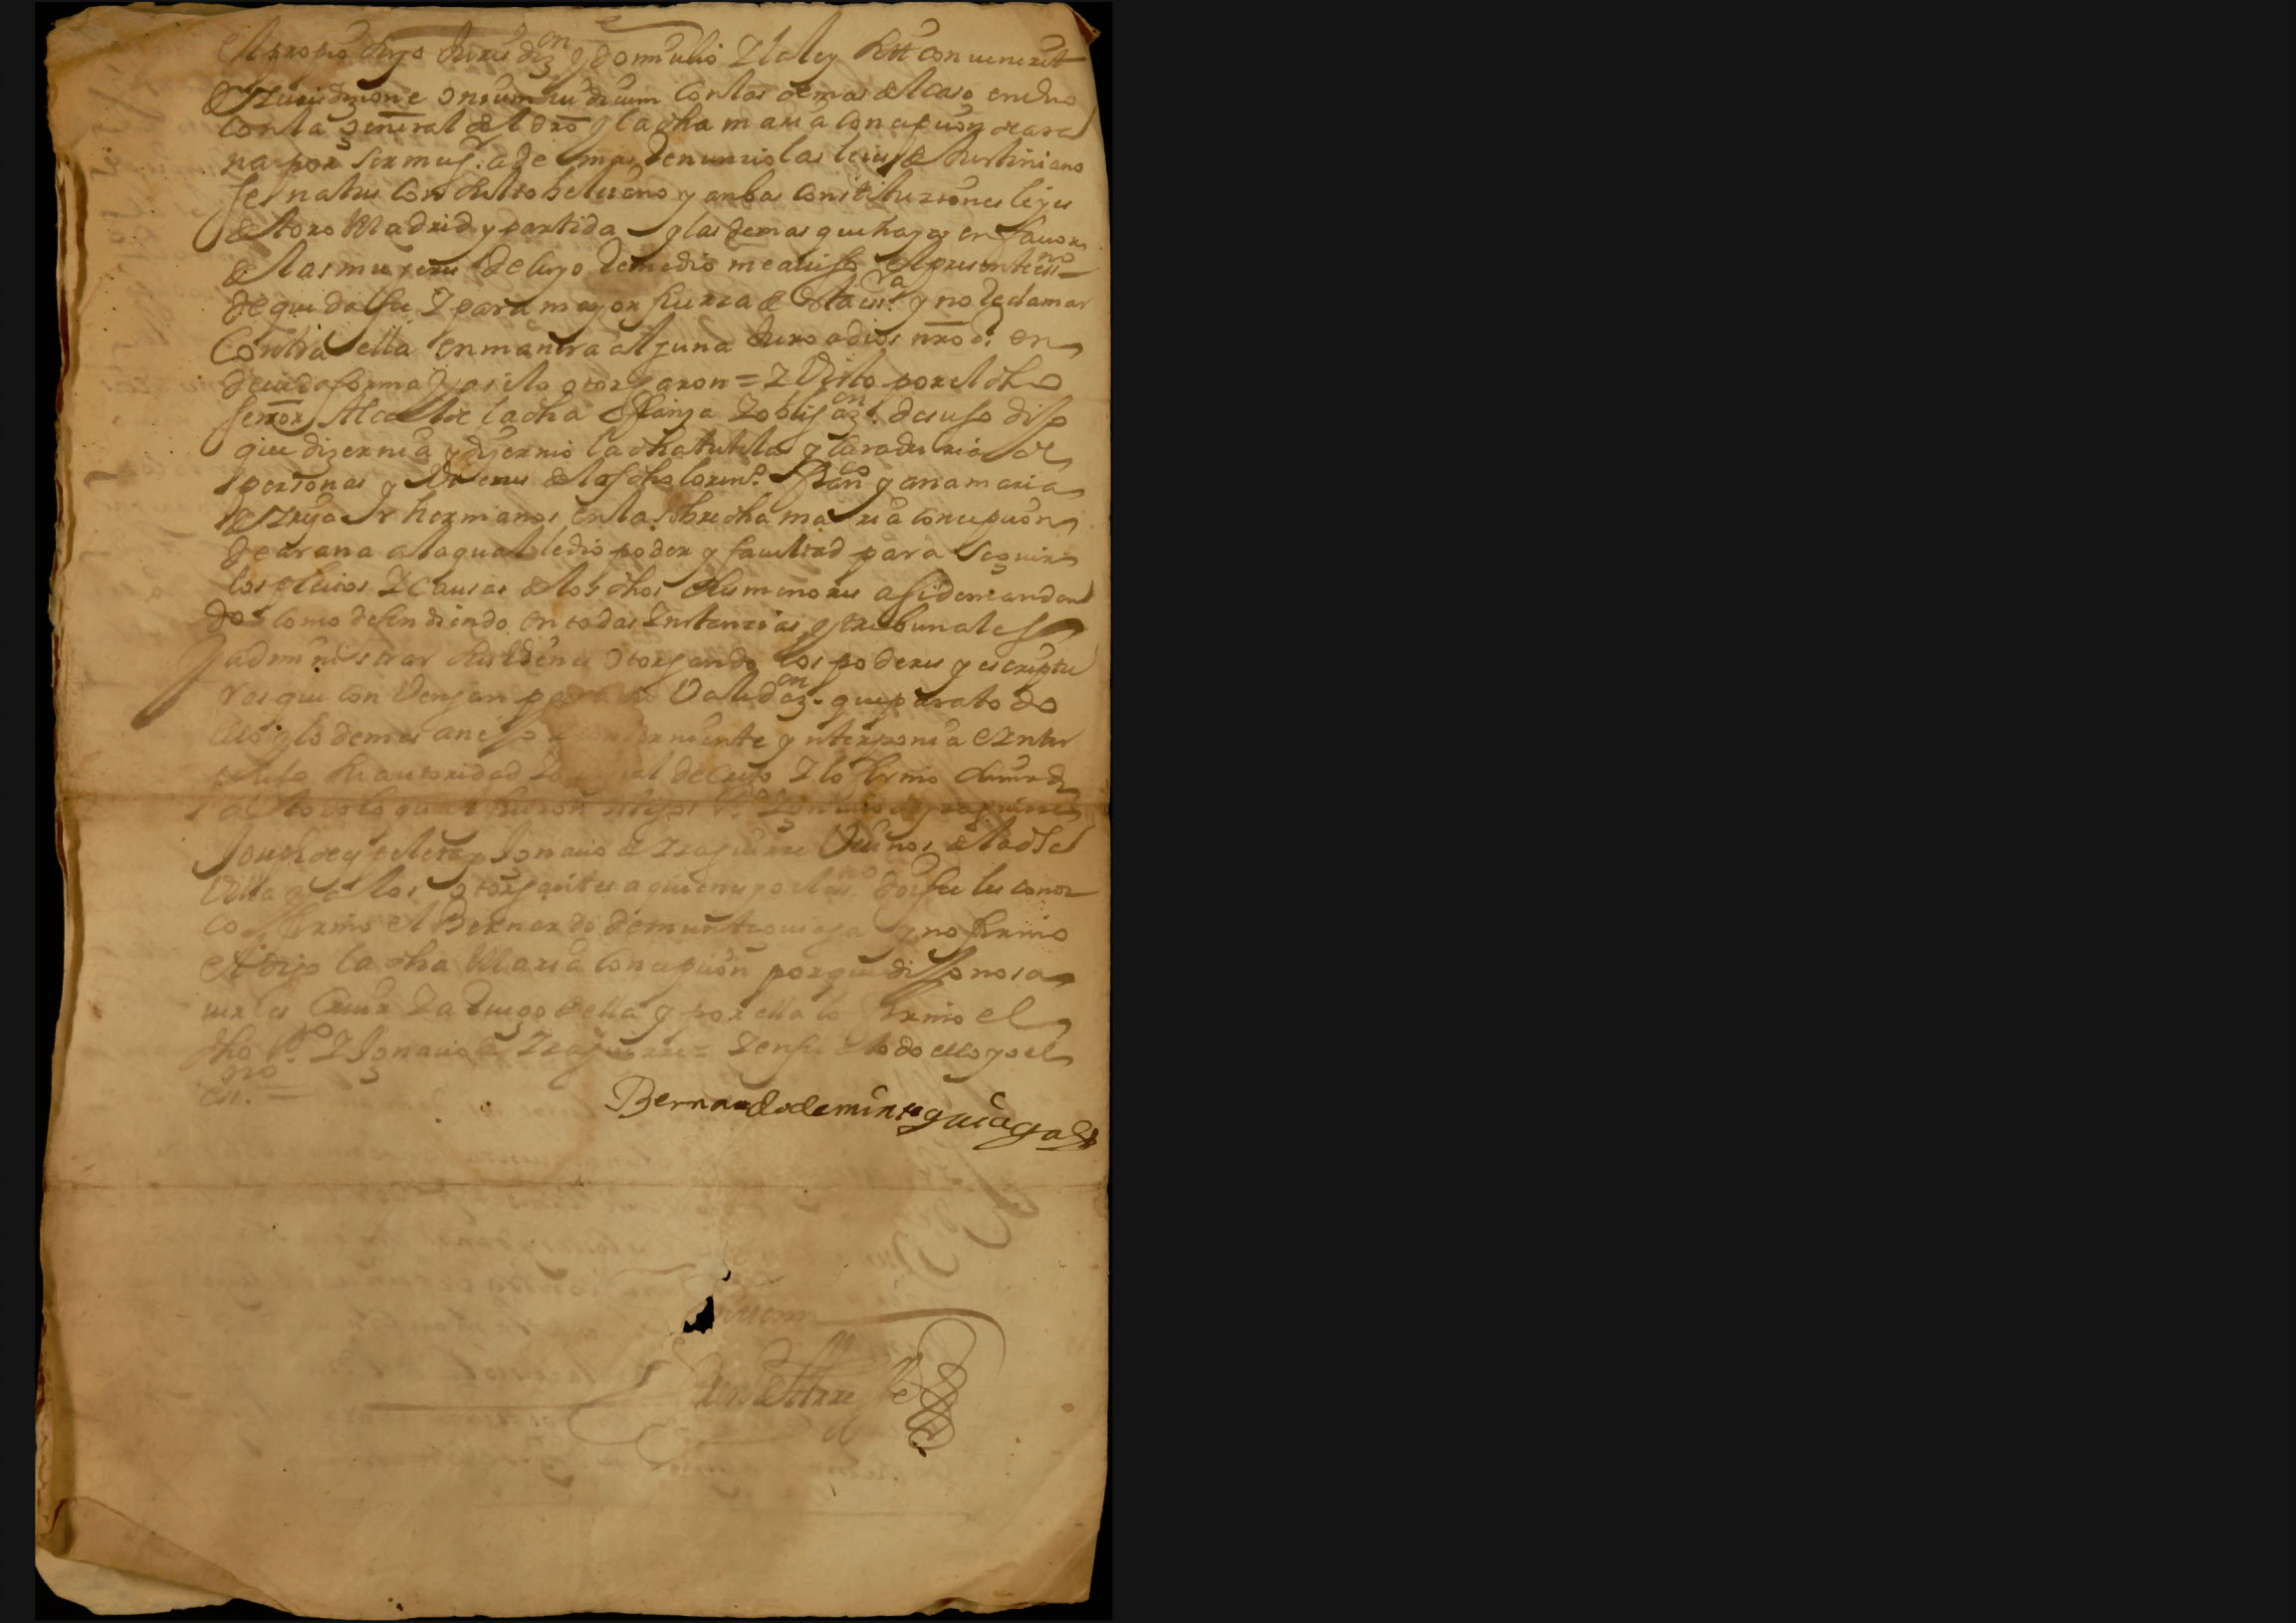 El propio fuero Jurisdizon y domiçilio Y la ley sitt conuenerit
de Jurisdizione oniun Judicum con las demas del caso en uno
con la general del dro y la dha maria Concepcion de ara
na por ser muger ademas Renunçio las leies de Justiniano
senatus Consulto beleiano y anbas Constituziones leyes
de toro Madrid y partida y las demas que hay en fauor
de las mugeres de cuyo Remedio me auiso el presente essno
de que da fee Y para mayor fuerza de esta essra y no Reclamar
Contra ella en manera alguna Juro a dios nro sr en
deuida forma y asi lo otorgaron = Y Visto por el dho
señor Alcalde la dha fianza Y obligazon de suso dijo
que dizernia y dizernio la dha tutela y Curaduria de
personas y Vienes de los dhos lorenzo Franco y ana maria
de hermanos en la sobredha maria Concepcion
de arana a la qual le dio poder y facultad para seguir
los pleitos Y Causas de los dhos sus menores asi demandan
do como defendiendo en todas Instanzias y tribunales
y administrar sus Vienes otorgando los poderes y escriptu
ras que Convengan para su Validazon que para todo
ello y lo demas anejo y conzerniente ynterponia e Inter
puso su autoridad Judicial decreto Y lo firmo
a todo lo qual fueron testigos
Joseph de y Ignacio de Yzaguirre Vezinos de la dha
Villa y a los otorgantes a quienes yo el essno doi fee les conoz
co firmo el Bernardo de munteguiaga y no firmo
la dha Maria Concepcion porque dijo no sa
uer escriuir Y a Ruego de ella y por ella lo firmo el
dho Y Ignacio de Yzaguirre = Y en fee de todo ello yo el
essno =
Bernardo de munteguiaga